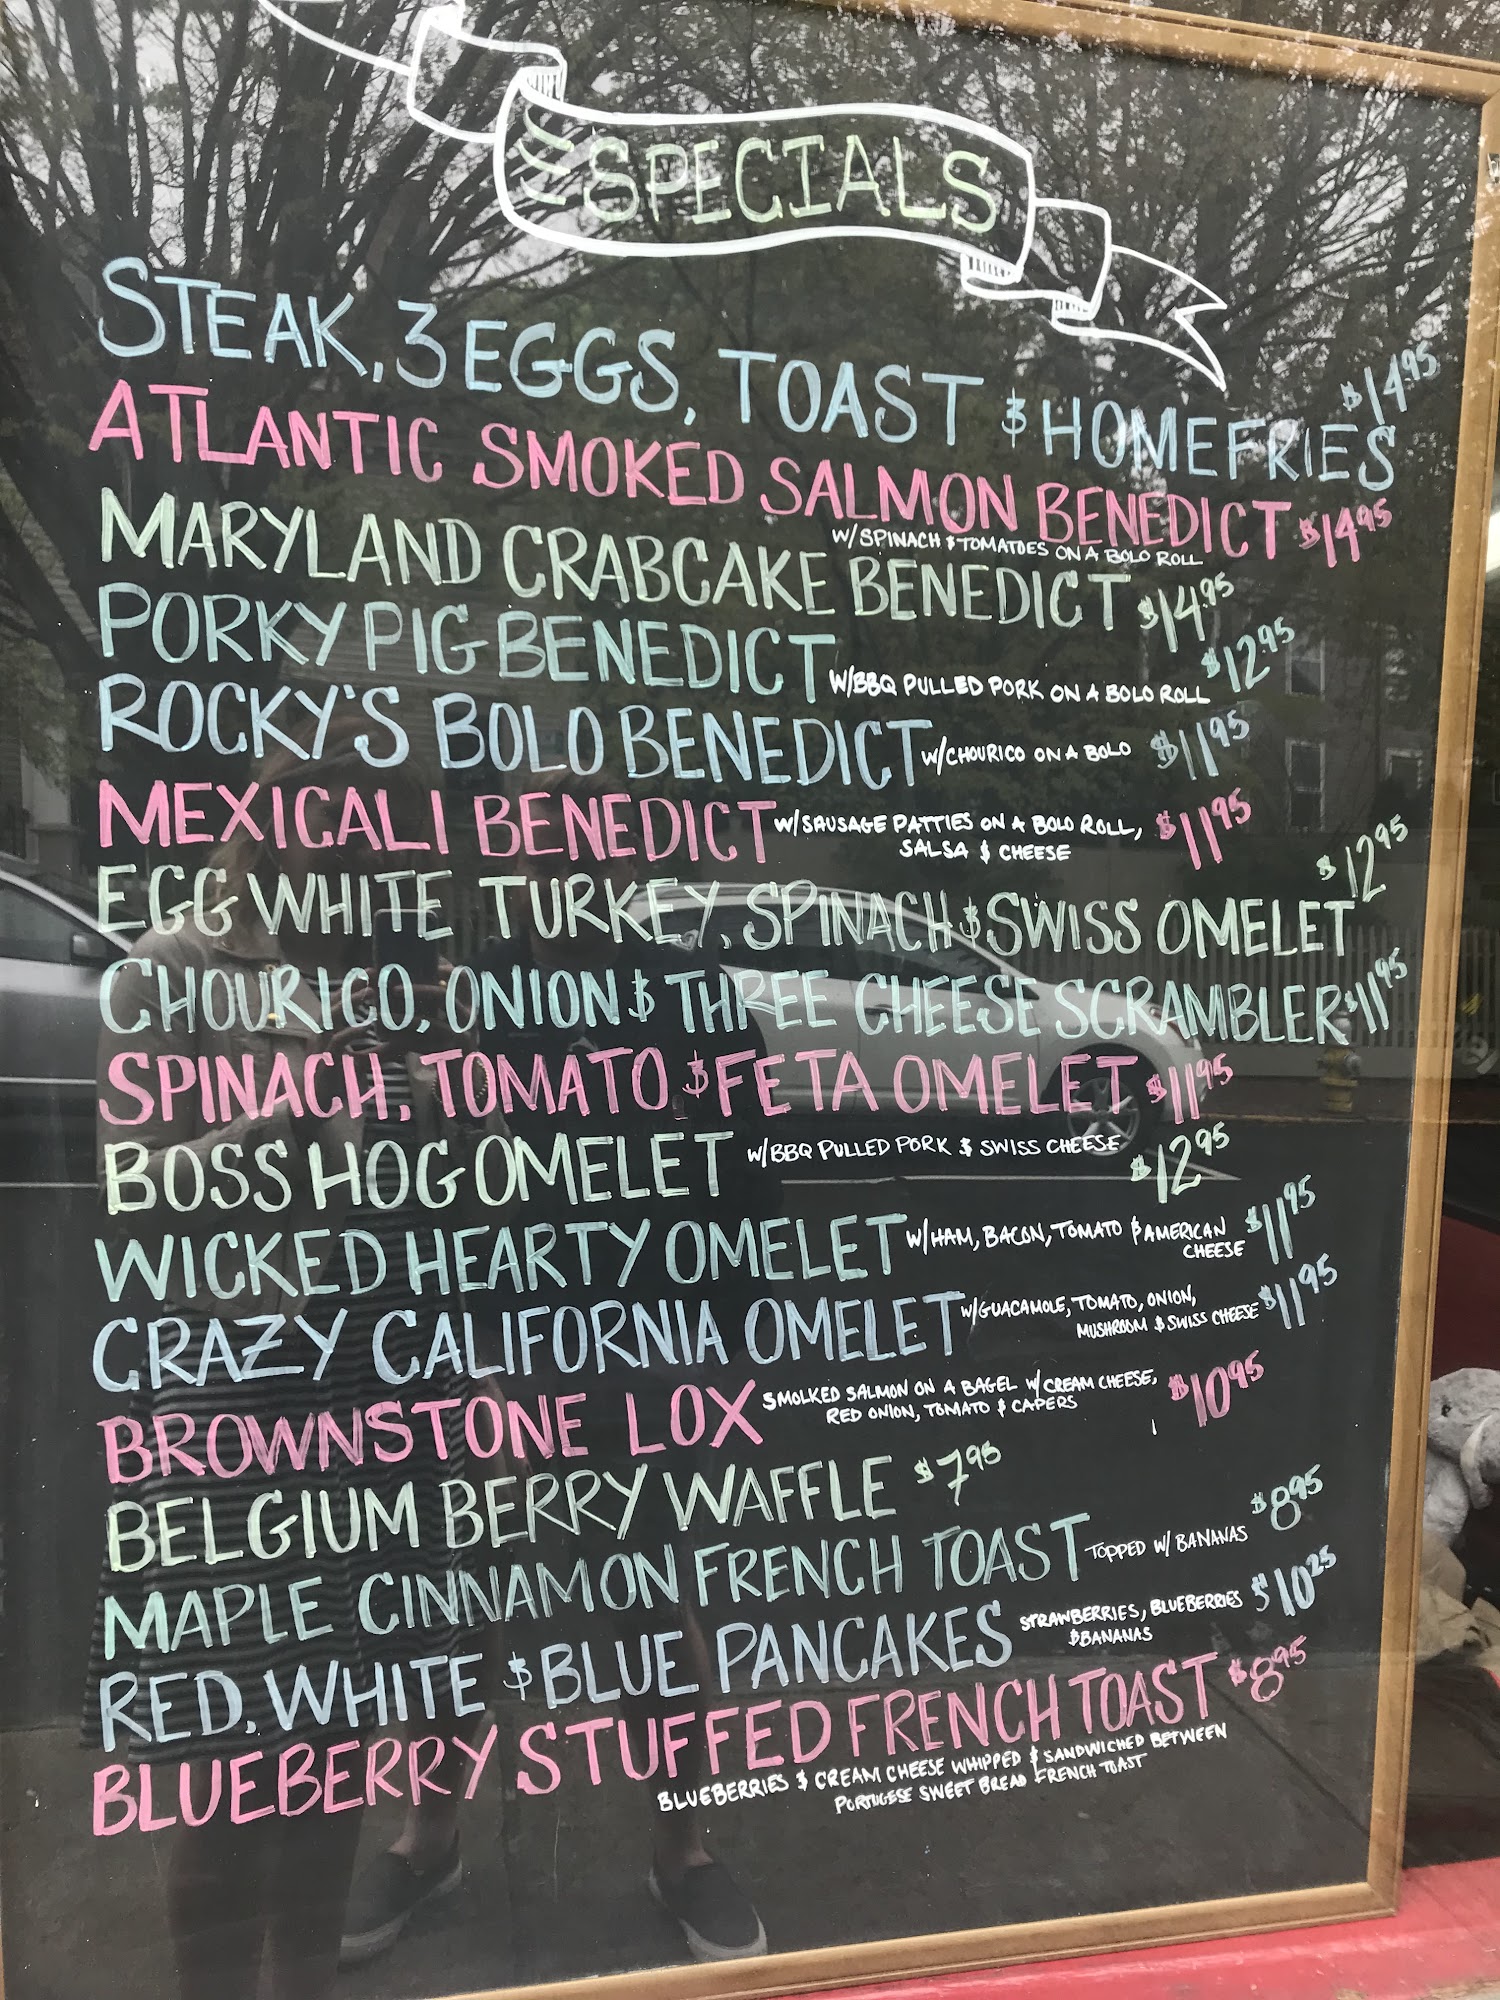 SPECIALS
STEAK, 3 EGGS, TOAST & HOMEFRIES $14.95
ATLANTIC SMOKED SALMON BENEDICT $14.95
W/ SPINACH & TOMATOES ON A BOLO ROLL
MARYLAND CRABCAKE BENEDICT $14.95
PORKY PIG BENEDICT W/BBQ PULLED PORK ON A BOLO ROLL $12.95
ROCKY'S BOLO BENEDICT W/CHOURICO ON A BOLO $11.95
MEXICALI BENEDICT W/SAUSAGE PATTIES ON A BOLO ROLL, $11.95
SALSA & CHEESE
EGG WHITE TURKEY, SPINACH & SWISS OMELET $12.95
CHOURICO, ONION & THREE CHEESE SCRAMBLER $11.95
SPINACH, TOMATO & FETA OMELET $11.95
BOSS HOG OMELET W/BBQ PULLED PORK & SWISS CHEESE $12.95
WICKED HEARTY OMELET W/HAM, BACON, TOMATO & AMERICAN $11.95
CHEESE
CRAZY CALIFORNIA OMELET W/GUACAMOLE, TOMATO, ONION, $11.95
MUSHROOM & SWISS CHEESE
BROWNSTONE LOX SMOLKED SALMON ON A BAGEL W/ CREAM CHEESE, $10.95
RED ONION, TOMATO & CAPERS
BELGIUM BERRY WAFFLE $7.95
MAPLE CINNAMON FRENCH TOAST TOPPED W/ BANANAS $8.95
RED, WHITE & BLUE PANCAKES STRAWBERRIES, BLUEBERRIES $10.25
& BANANAS
BLUEBERRY STUFFED FRENCH TOAST $8.95
BLUEBERRIES & CREAM CHEESE WHIPPED & SANDWICHED BETWEEN
PORTUGESE SWEET BREAD FRENCH TOAST